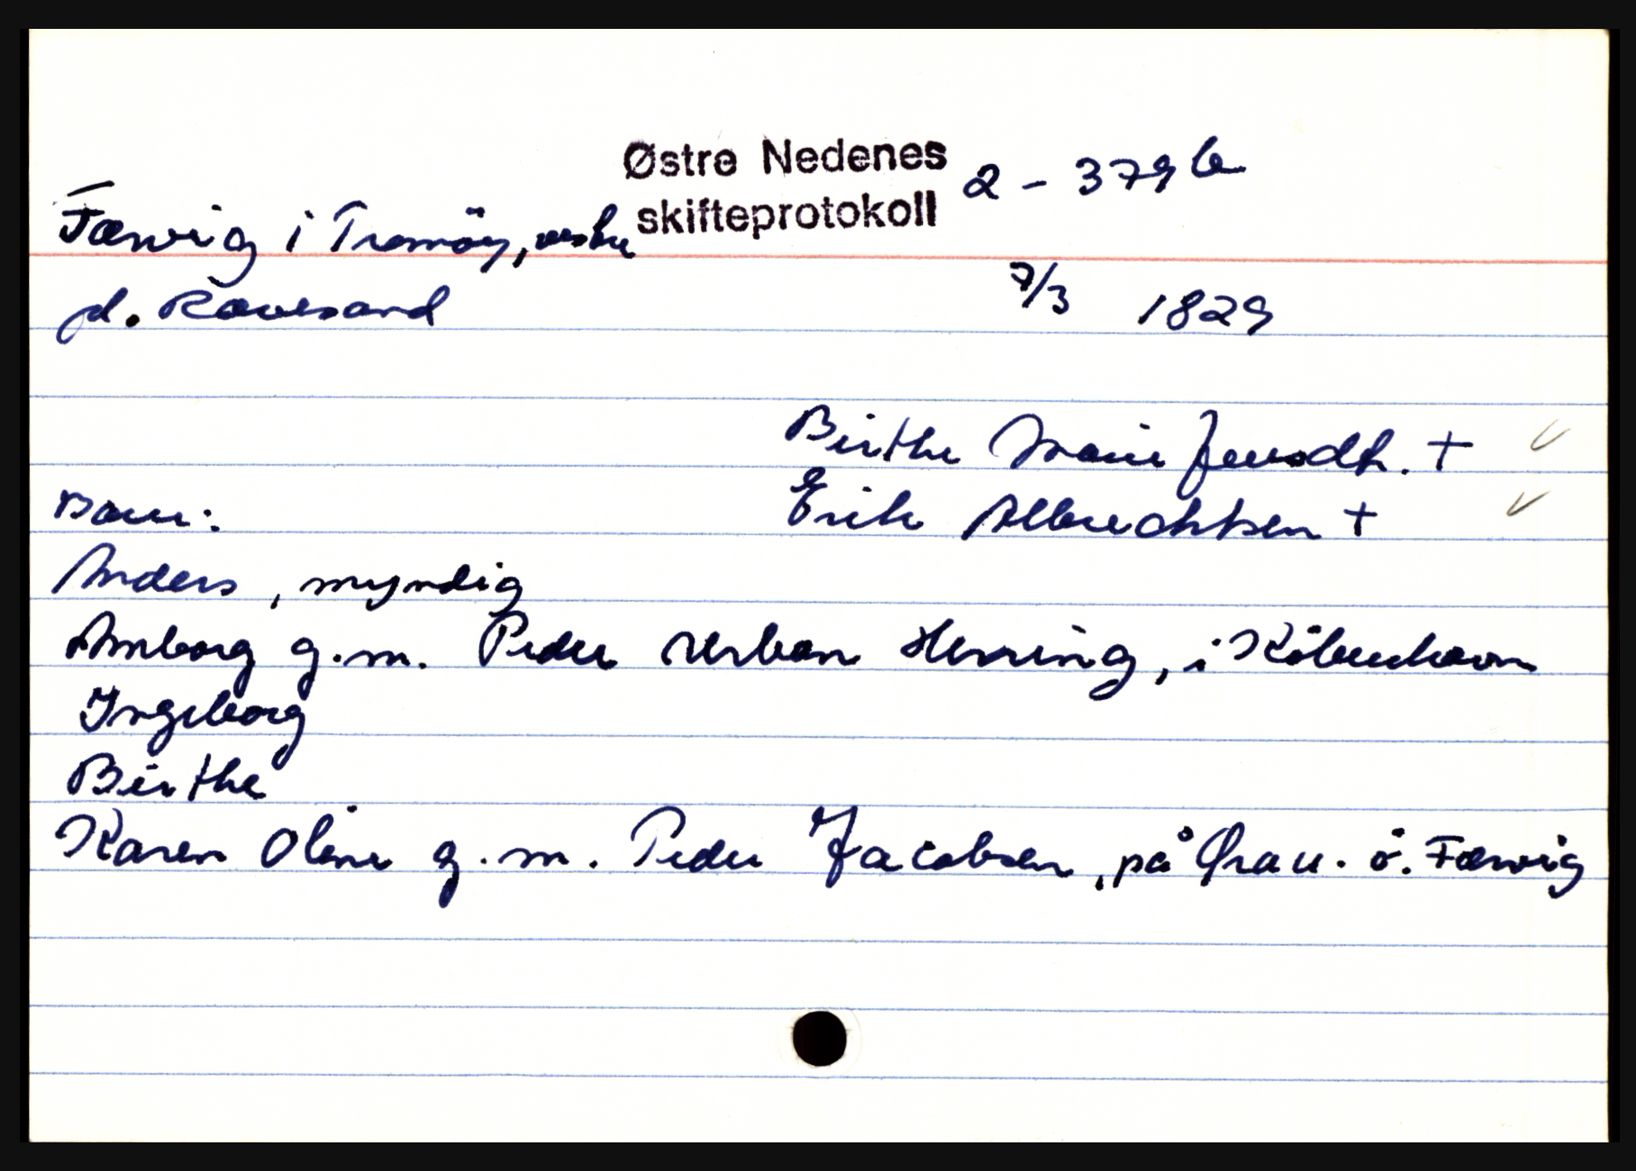 Østre Nedenes
skifteprotokoll
2 - 379 b
Færvig i Tromöy, vestre
d. Ravesand
7/3 1829
Birthe Marie Jensdtr. + ✓
Erik Albrechtsen + ✓
Barn:
Anders, myndig
Amborg g.m. Peder Urban Henning, i Köbenhavn
Ingeborg
Birthe
Karen Oline g.m. Peder Jacobsen, på Grau. ö. Færvig